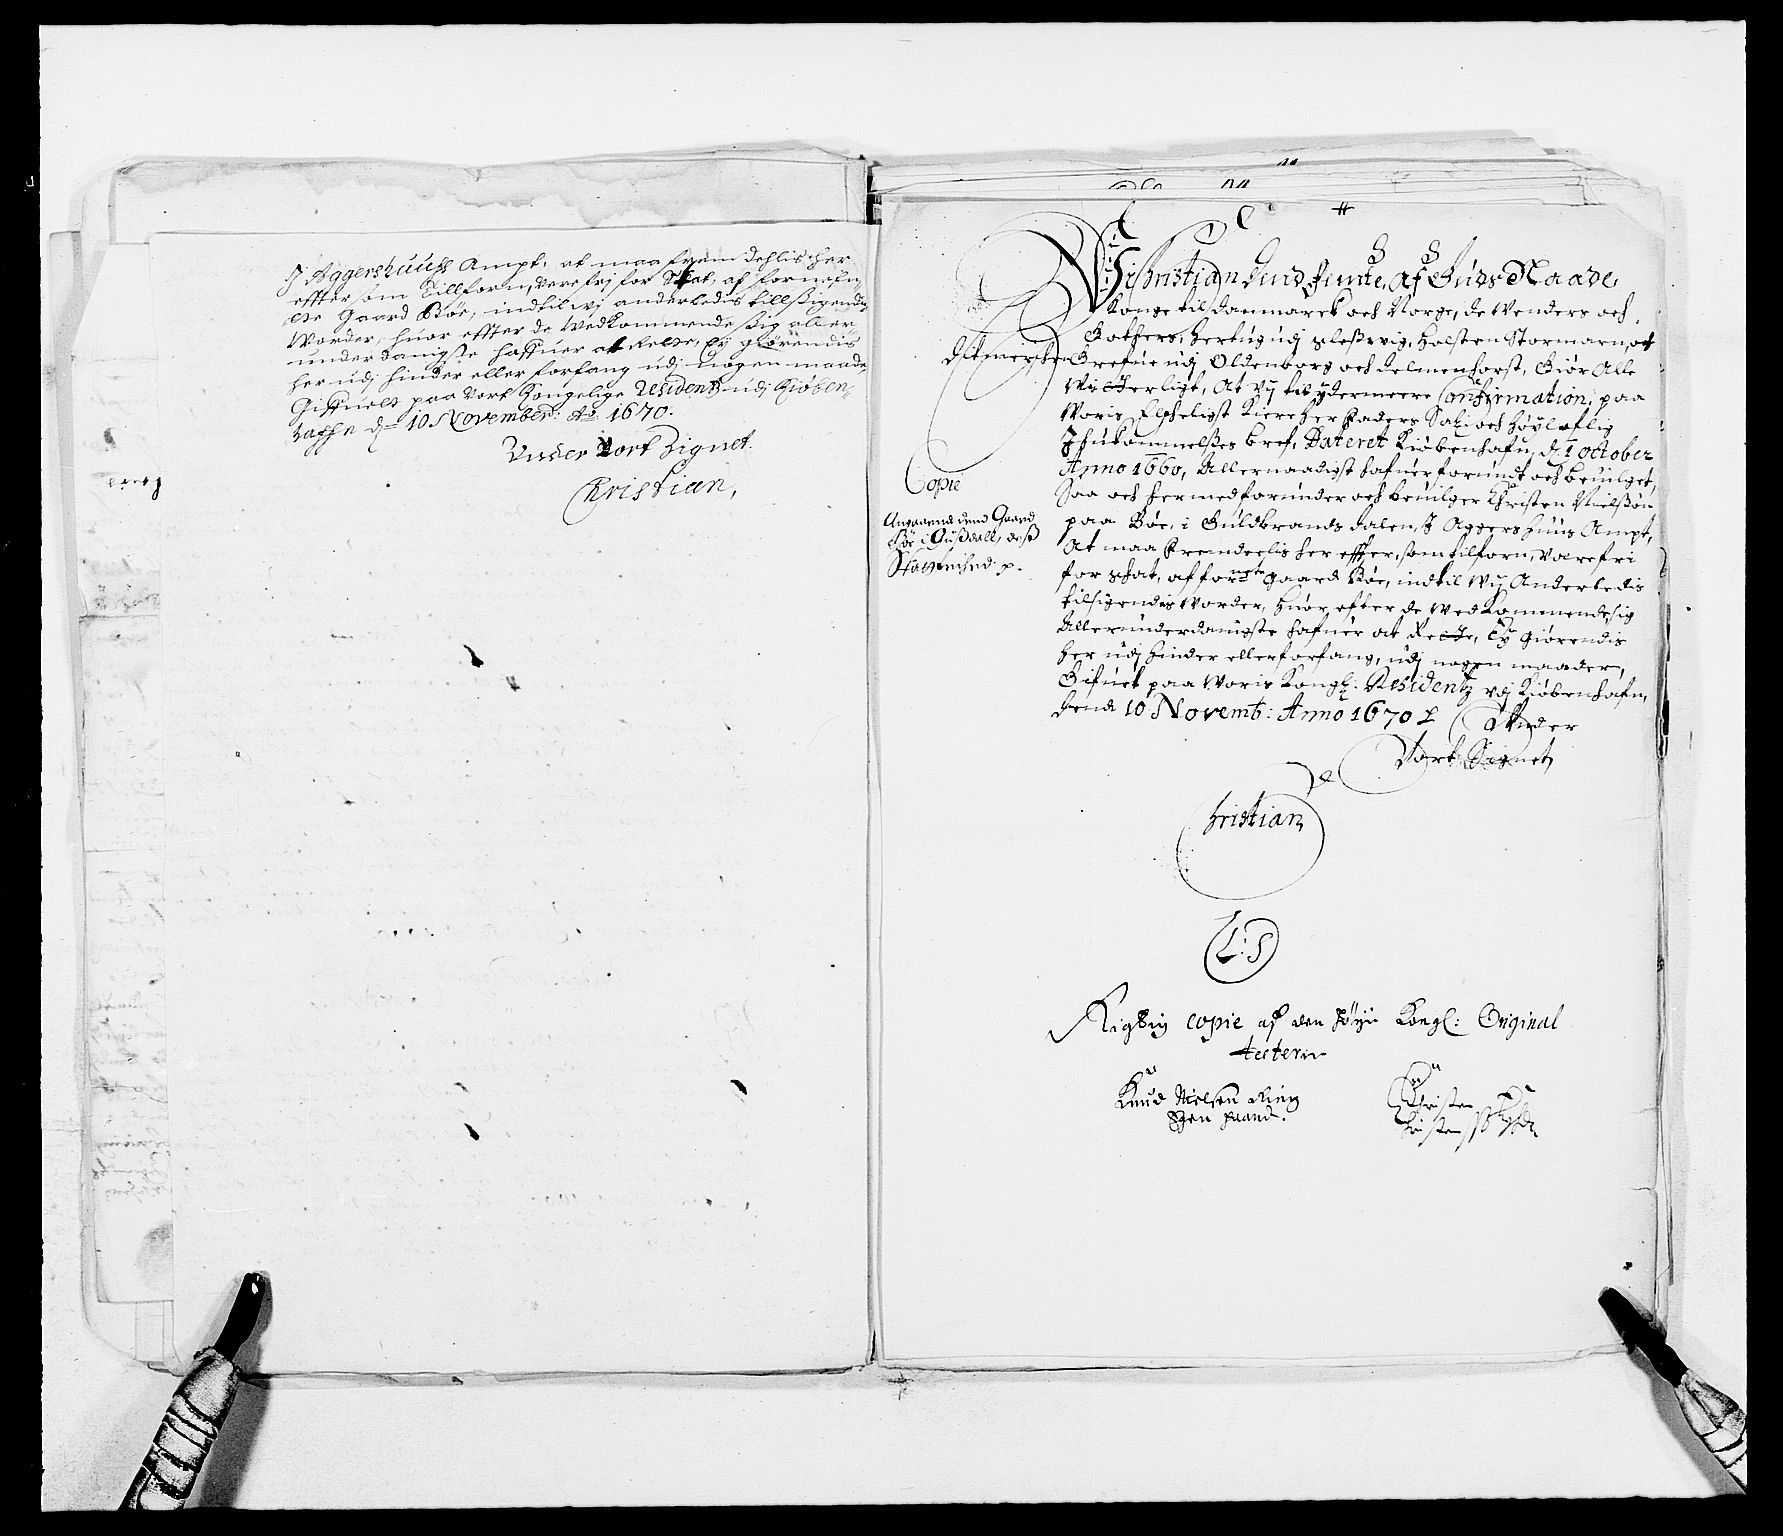 J Aggershuuss Ampt, at maa fremdehlis her
effter som Tillforn, vere frj for Skat, af fornefn
dte Gaard Böe, indtil wj anderledis tillsigendis
Worder, huor effter de Wedkommende sig aller-
underdanigste haffuer at Rette, Ey giörendis
her udj hinder eller forfang udj nogen maade,
Giffuett paa Vort Kongelige Residentz udj Kiöben-
haffn d. 10 November: Ao 1670.
Under Vort Zignet
Christian,
Wi Christian dend Femte, Af Guds Naade,
Konge til Danmarck och Norge, de Wenders och
Gothers, Hertug udj Slesvig, Holsten Stormarn, och
Ditmersken Grefue udj Oldenborg och Delmenhorst, Giör Alle
Witterligt, At Vij til ydermeere Confirmation, paa
Woris Elskeligst Kiere Her Faders Sal: och Höyloflig
Ihukommelsses bref, Dateret Kiöbenhafn, d. 1 October
Anno 1660, Allernaadigst hafuer forundt och beuilget,
Saa och hermed forunder och beuilger Christen Nielssön
paa Böe, i Guldbrandsdalen, J Aggershuus Ampt,
At maa Fremdeelis her effter, som tilforn, vare fri
for Skat, af forn.te gaard Böe, indtil Wij Anderledis
tilsigendis Worder, Huor efter de Wedkommende, sig
Allerunderdanigste hafuer at Rette, Ey giörendis
her udj hinder eller forfang, udj nogen maader,
Gifuet paa Woris Kongl: Residentz vdj Kiöbenhafn,
Dend 10 Novemb: Anno 1670
Under
Vort Signet
Christian
L: S
Copie
Angaaende dend Gaard
Böe i Gulsdall, dess
Skattfrihed p.
Rigtig Copie af den höye Kongl: Original
testerer
Knud Nielsen Ring
Egen Haand.
Christen